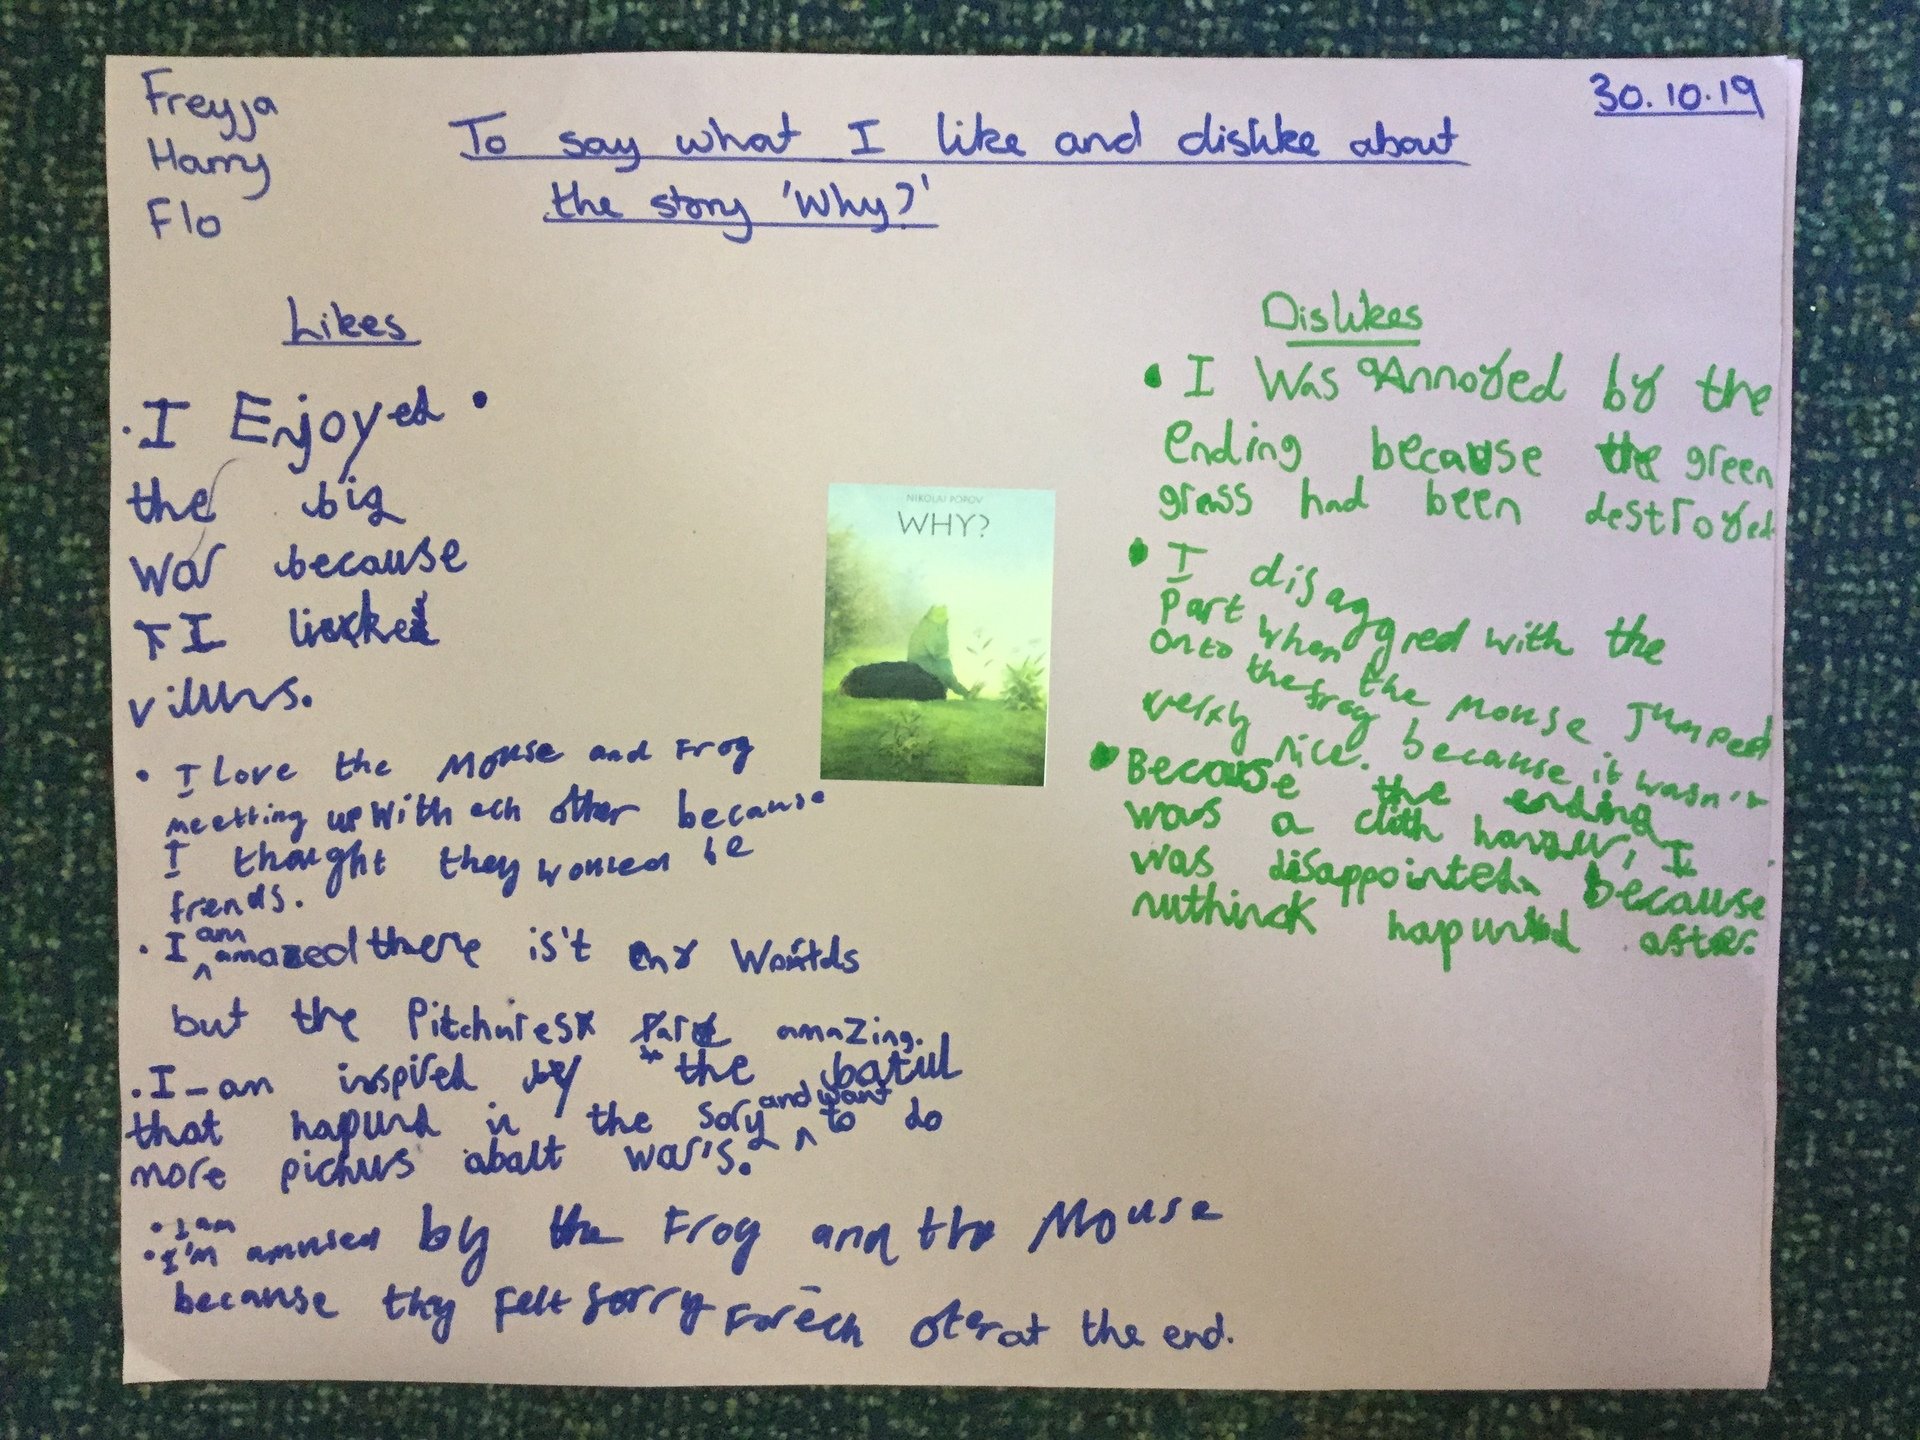 Freyja
Harry
Flo
30.10.19
To say what I like and dislike about
the story 'Why?'
Likes
• I Enjoyed •
the big
war because
I liked
villuns.
• I Love the Mouse and Frog
meetting up With ech other because
I thought they woured be
frends.
• I am amazed there is't eny Words
but the Pitchures are amazing.
• I-am inspired by the batul
that hapund in the sory and want to do
more pichus abalt war's.
• I am
• I'm amused by the Frog and the Mouse
because thy felt sorry For ech oter at the end.
NIKOLAI POPOV
WHY?
Dislikes
• I Was Annoyed by the
Ending because the green
grass had been destroyed
• I disaggred with the
Part when the Mouse Jumped
onto the frog because it wasn't
very nice.
• Because the ending
was a clith hanzur, I
was disappointed because
nuthinck hapund after.